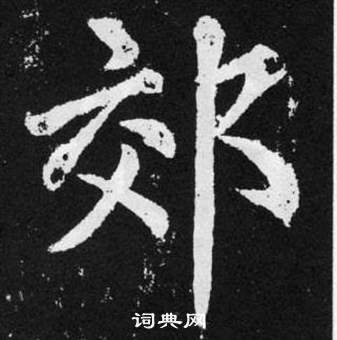 郊
词典网